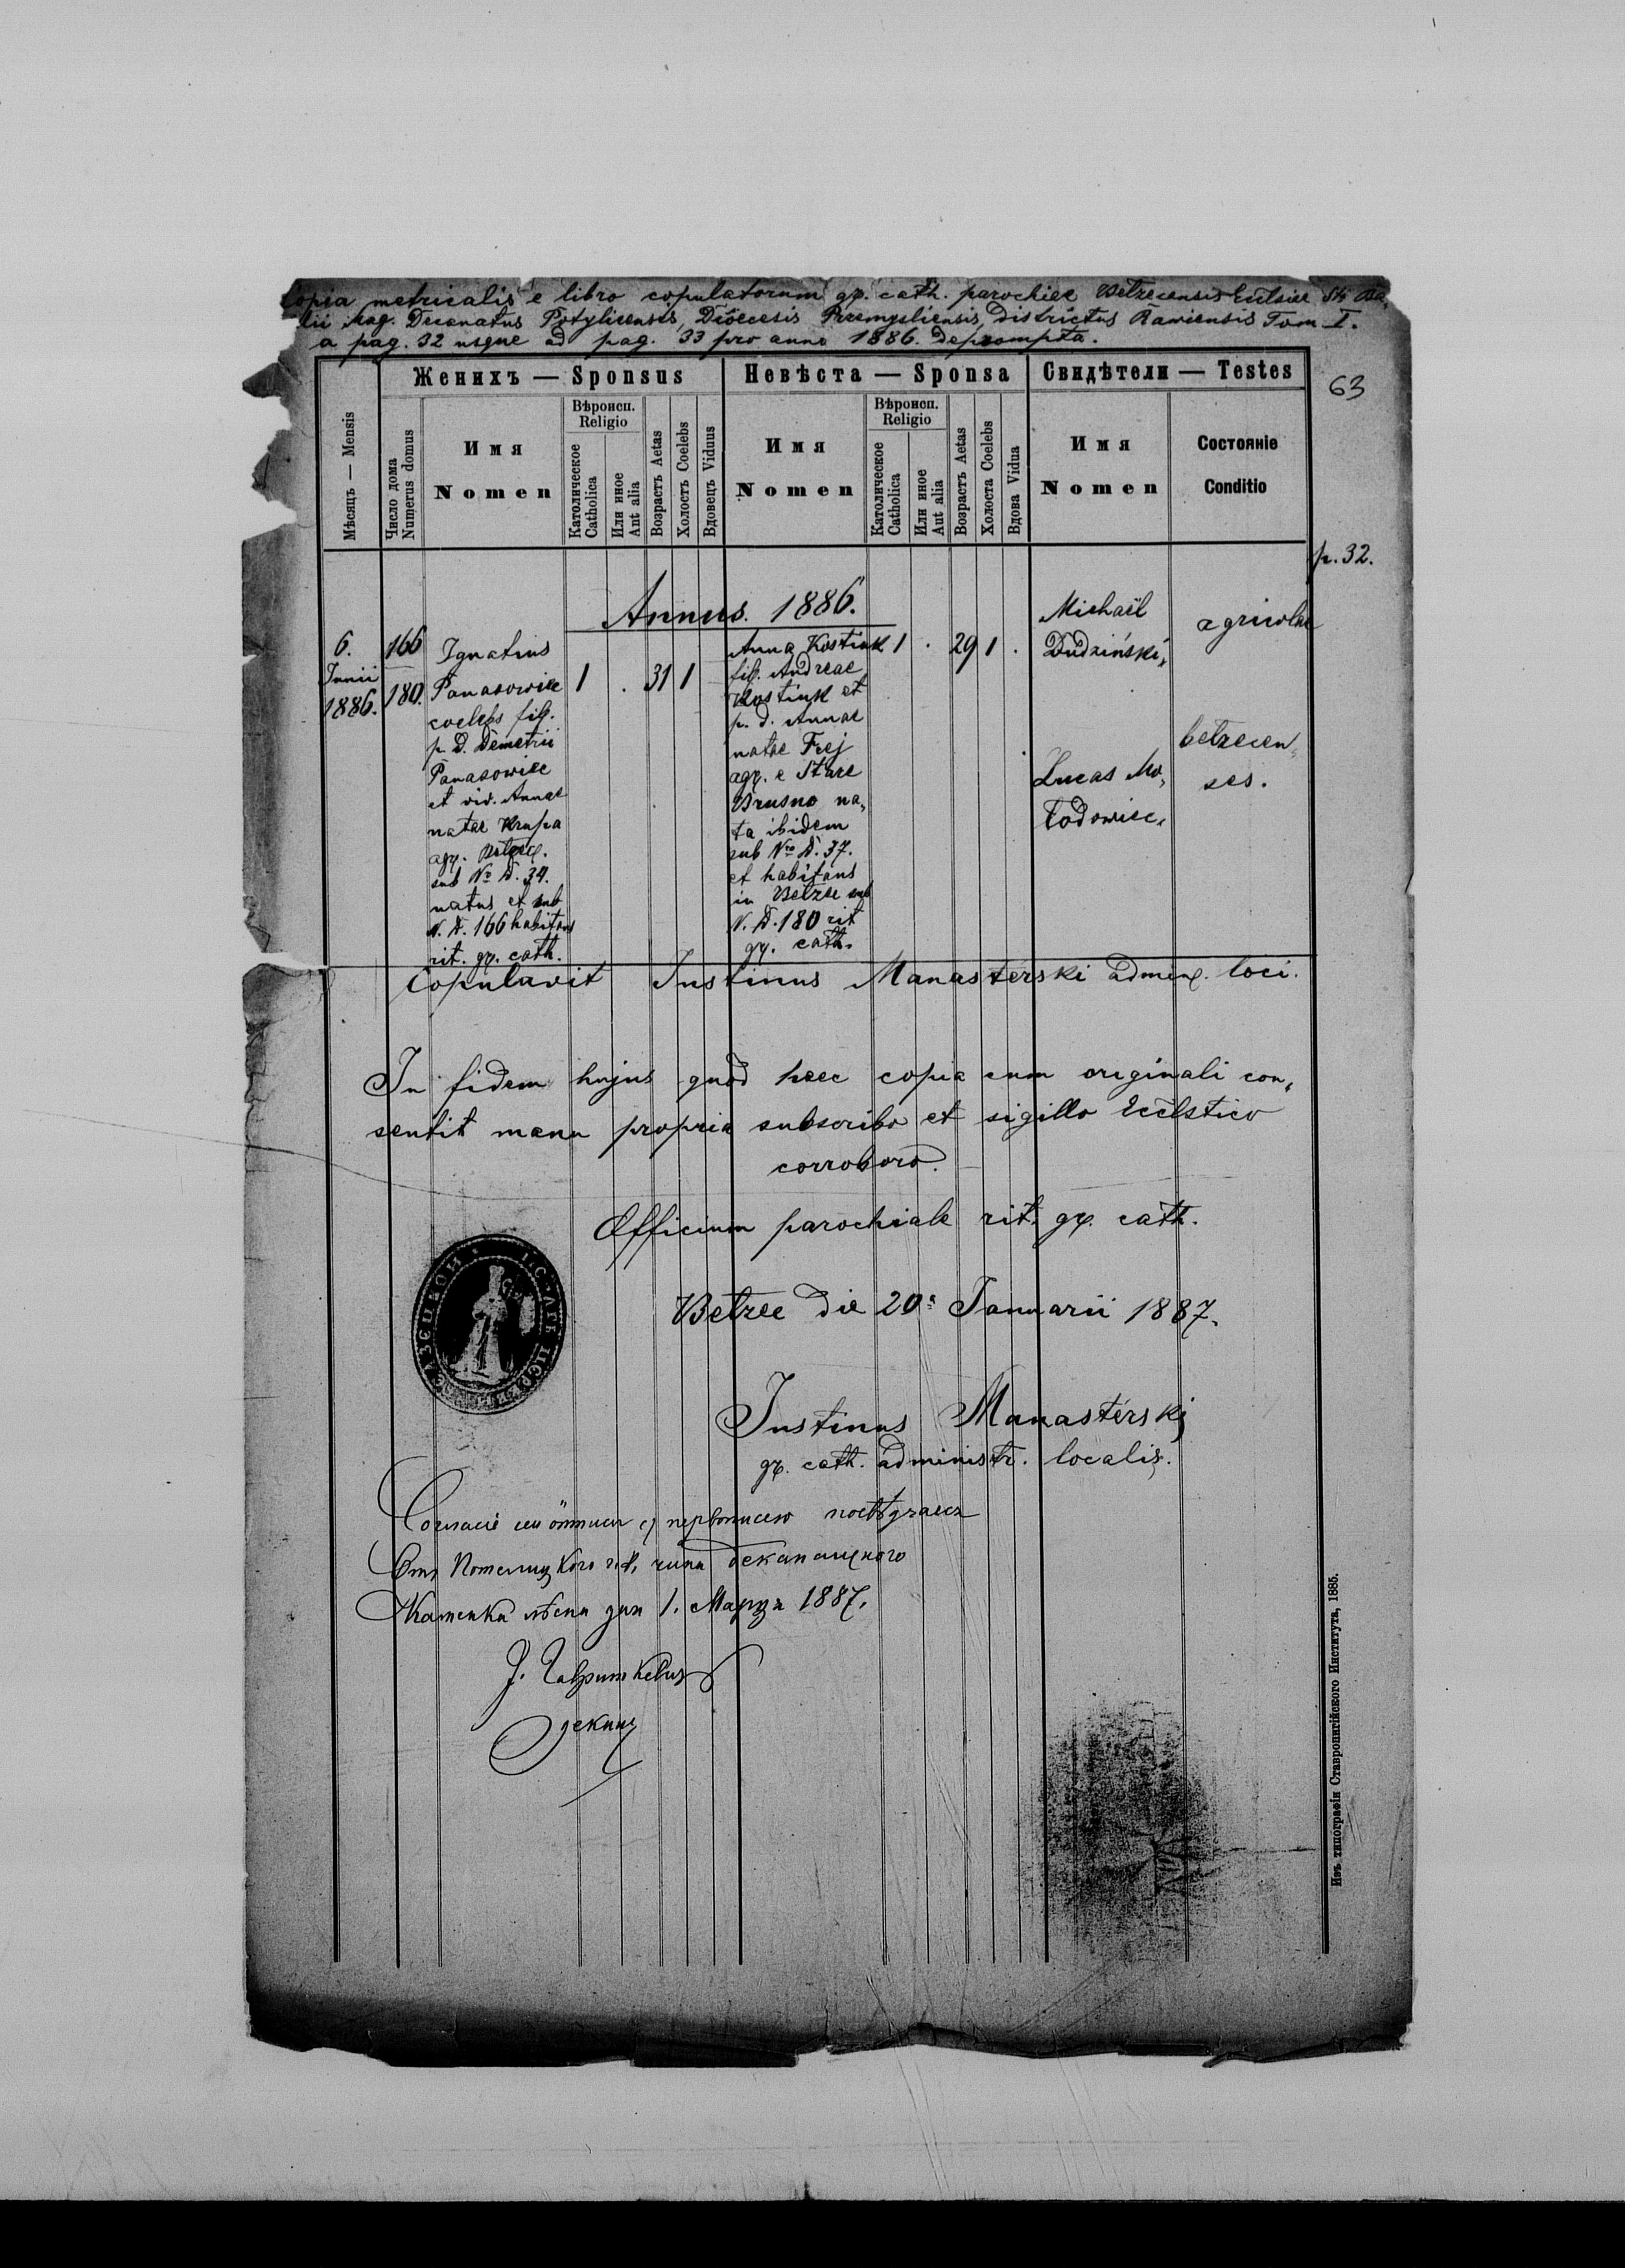 Copia metricalis e libro copulatorum gr. cath. parochiae Betzecensis Eccl̃siae Sti Ba,
lii Mag. Decanatus Potylicensis, Dioecesis Przemysliensis, districtus Rawiensis Tom I.
a pag. 32 usque ad pag. 33 pro anno 1886. deprompta.
63
Женихъ — Sponsus
Невѣста — Sponsa
Свидѣтели — Testes
Мѣсяцъ — Mensis
Число дома
Numerus domus
Имя
Nomen
Вѣроисп.
Religio
Католическое
Catholica
Или иное
Aut alia
Возрастъ Aetas
Холостъ Coelebs
Вдовецъ Viduus
Имя
Nomen
Вѣроисп.
Religio
Католическое
Catholica
Или иное
Aut alia
Возрастъ Aetas
Холоста Coelebs
Вдова Vidua
Имя
Nomen
Состояніе
Conditio
p. 32.
Annus. 1886.
6.
Junii
1886.
166
180.
Ignatius
Panasowiec
coelebs fil.
p. d. Demetrii
Panasowiec
et viv. Annae
natae Krupa
agr.
sub No D. 34.
natus et sub
N. D. 166 habitans
rit. gr. cath.
1 . 31 1
Anna Kostiuk
fil. Andreae
Kostiuk et
p. d. Annae
natae Frej
agr. e Stare
Brusno na,
ta ibidem
sub Nro D. 37.
et habitans
in Betzec sub
N. D. 180 rit
gr. cath.
1 . 29 1 .
Michaël
Dudziński,
Lucas Mo,
łodowiec,
agricolae
betzecen,
ses.
Copulavit Justinus Manasterski admin. loci.
In fidem hujus quod haec copia cum originali con,
sentit manu propria subscribo et sigillo Eccl̃stico
corroboro.
Officium parochiale rit. gr. cath.
Betzec die 20. Januarii 1887.
Justinus Manasterski
gr. cath. administr. localis.
Согласіе сеи отписи съ первописею посвѣдчаесъ
Отъ Потелицкого г. к. чина деканального
Каменка лѣсна дня 1. Марца 1887.
деканъ
Изъ типографіи Ставропигійского Института, 1885.